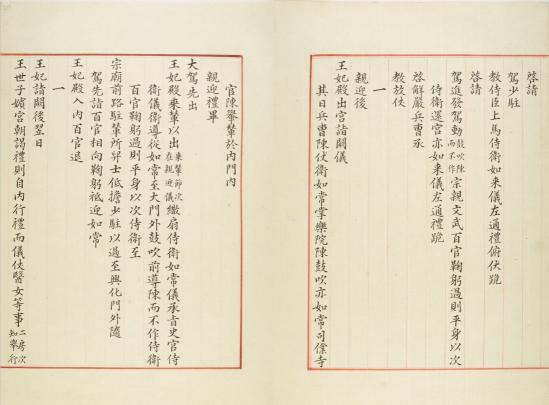 啓請
駕少駐
教侍臣上馬侍衛如來儀左通禮俯伏跪
啓請
駕進發駕動鼓吹陳而不作宗親文武百官鞠躬過則平身以次
侍衛還宮亦如來儀左通禮跪
啓解嚴兵曹承
教放仗
一
親迎後
王妃殿出宮詣闕儀
其日兵曹陳仗衛如常掌樂院陳鼓吹亦如常司僕寺
官陳輦輦於內門內
親迎禮畢
大駕先出
王妃殿乘輦以出乘輦節次在親迎儀繖扇侍衛如常儀承旨史官侍
衛儀衛導從如常至大門外鼓吹前導陳而不作侍衛
百官鞠躬過則平身以次侍衛至
宗廟前路駐輦所舁士低擔少駐以過至興化門外隨
駕先詣百官相向鞠躬祗迎如常
王妃殿入內百官退
一
王妃詣闕後翌日
王世子嬪宮朝謁禮則自內行禮而儀仗醫女等事二房次知擧行